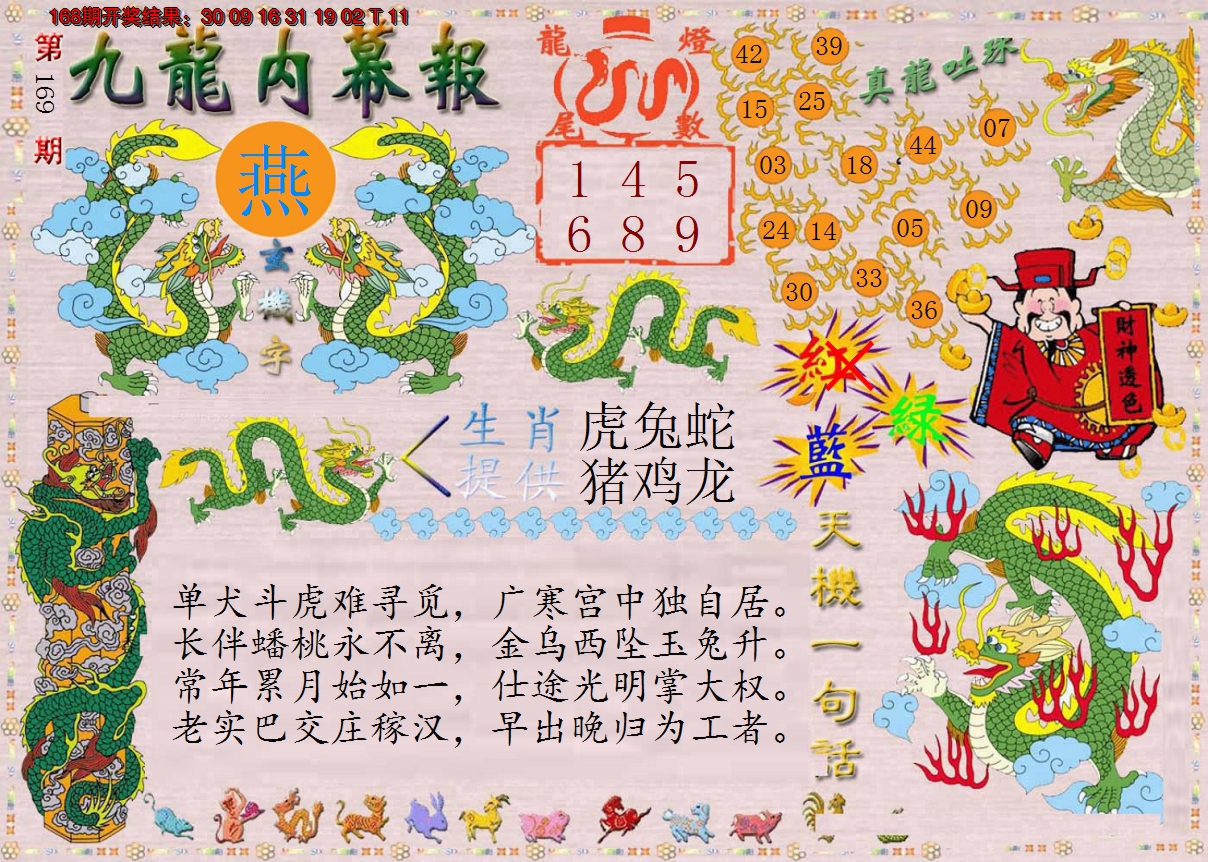 168期开奖结果：30 09 16 31 19 02 T 11
第169期
九龍内幕報
燕
玄機字
龍燈
尾數
1 4 5
6 8 9
真龍吐珠
42 39
15 25
03 18 44 07
24 14 05 09
30 33 36
財神透色
紅
綠
藍
生肖
提供
虎兔蛇
猪鸡龙
天機一句話
单犬斗虎难寻觅，广寒宫中独自居。
长伴蟠桃永不离，金乌西坠玉兔升。
常年累月始如一，仕途光明掌大权。
老实巴交庄稼汉，早出晚归为工者。